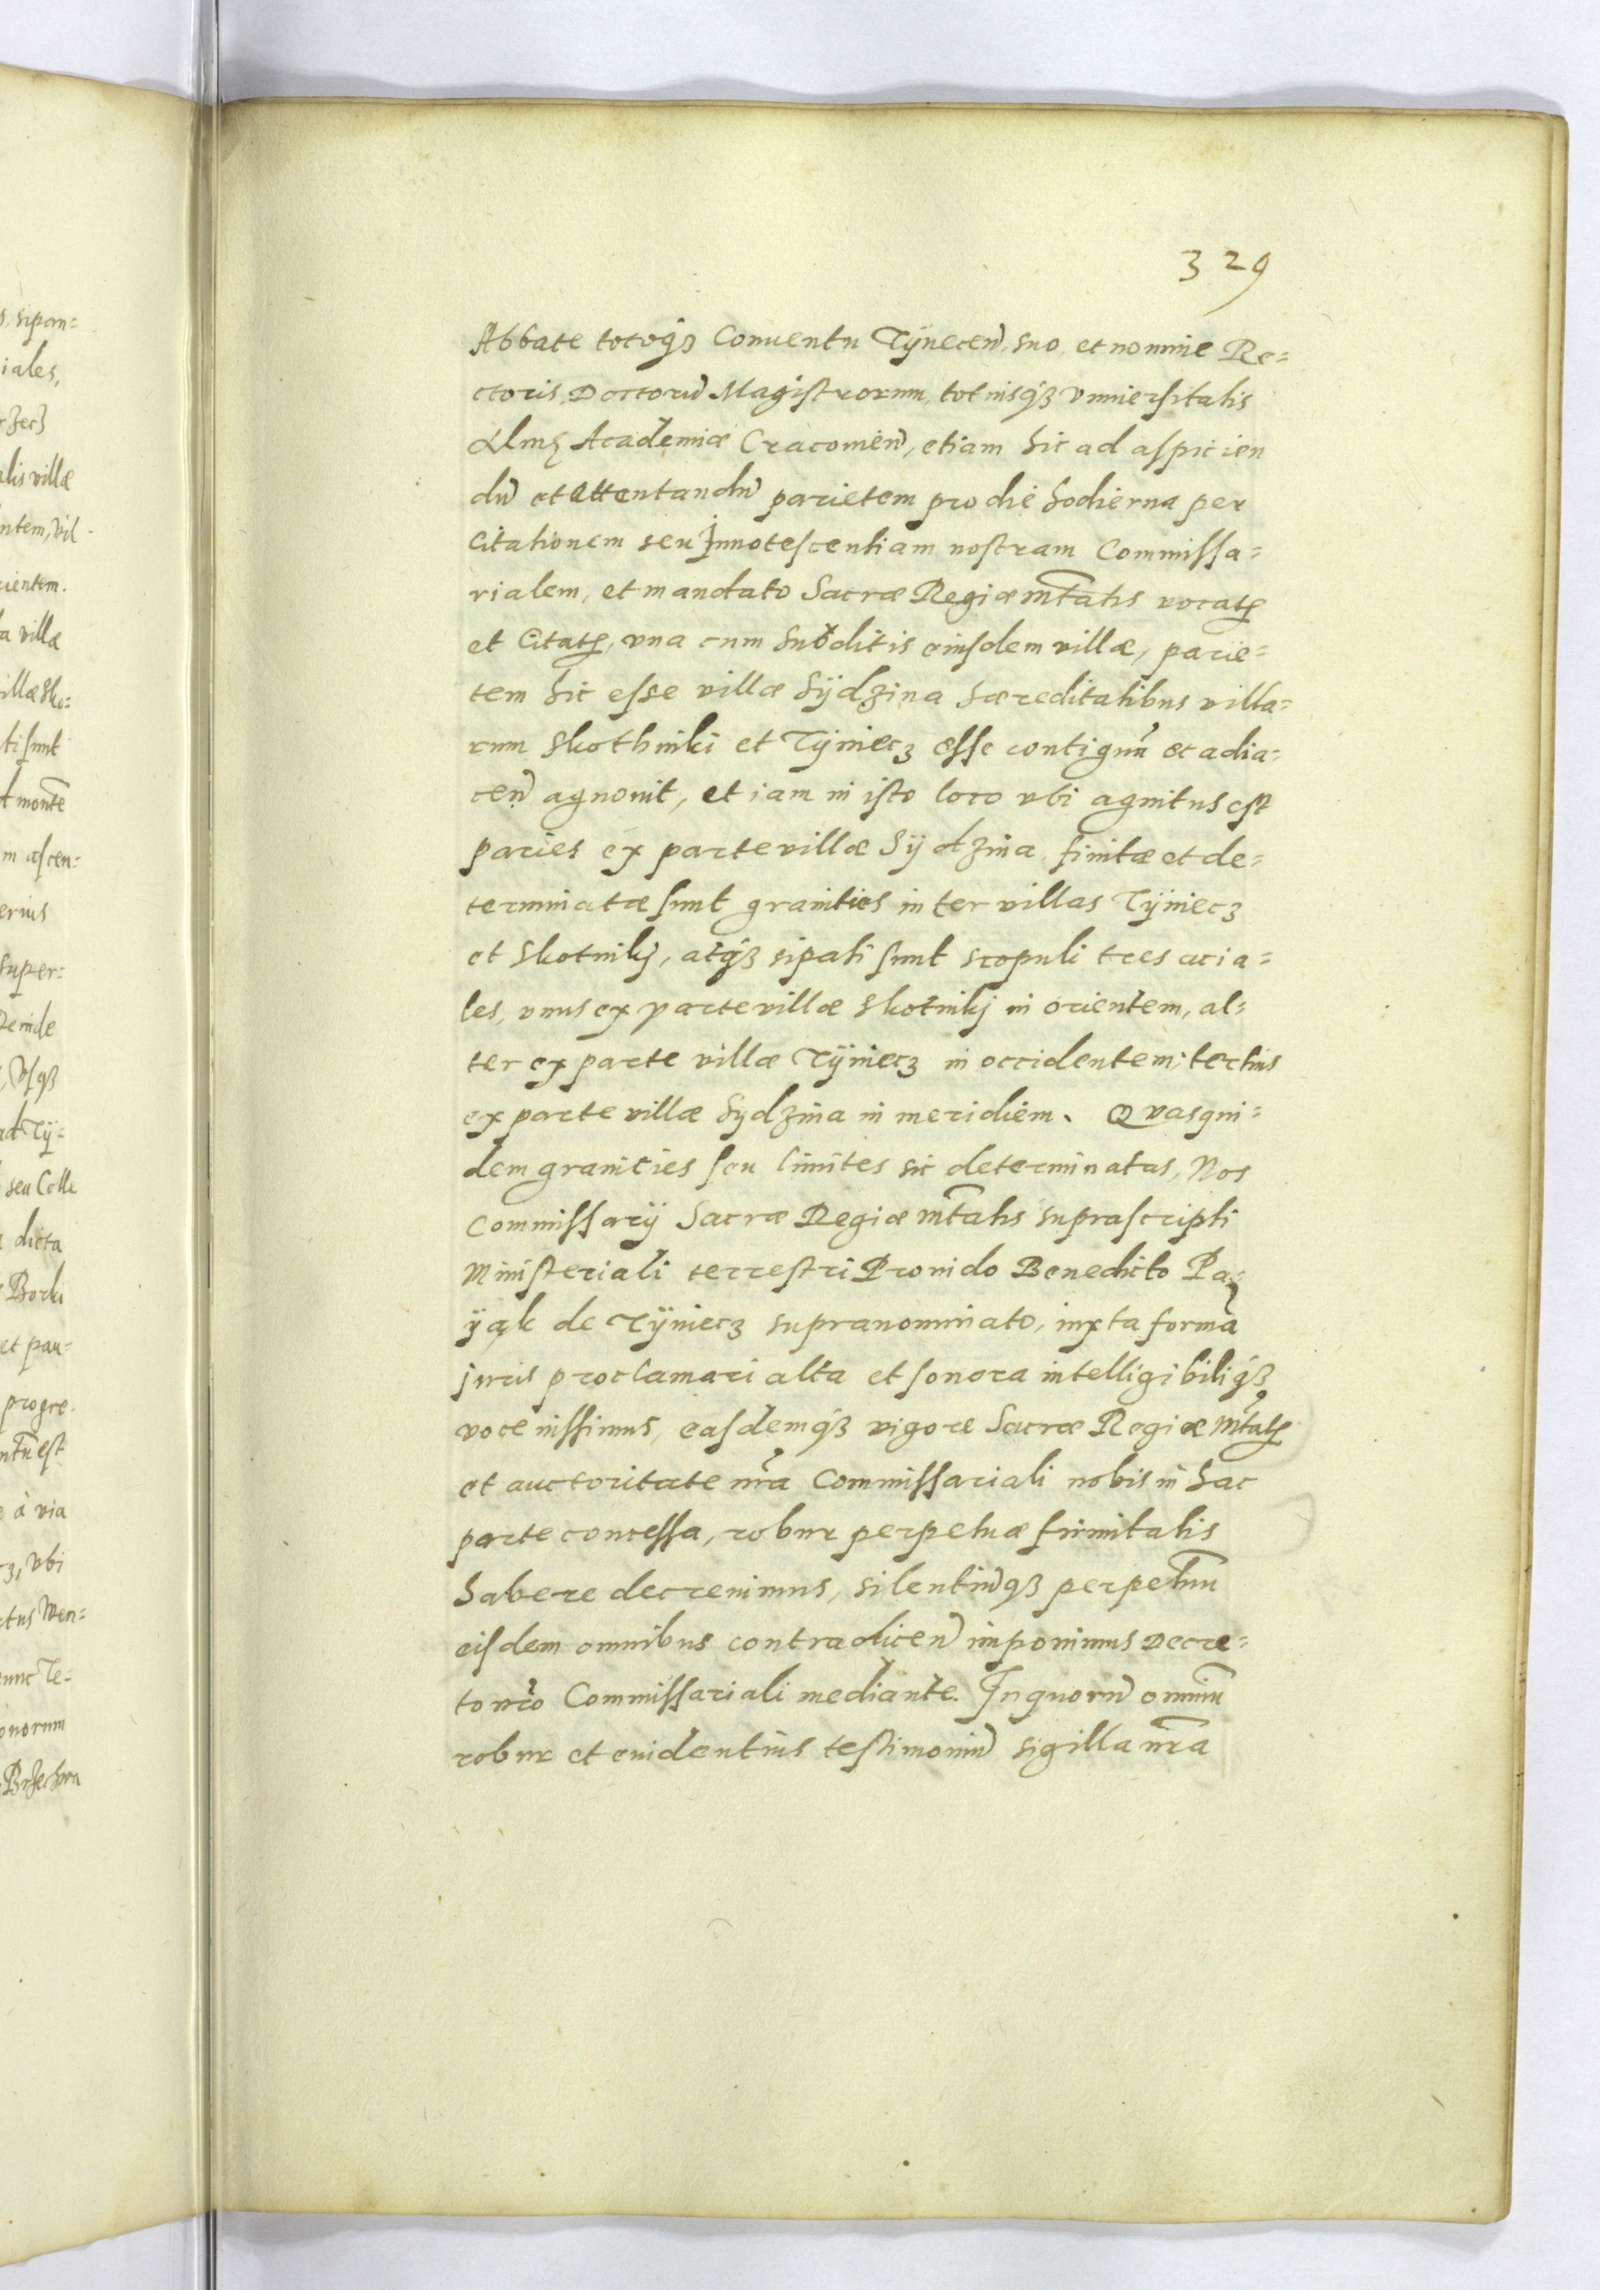 329
Abbate totoqȝ Conuentu Tÿnecen̄, suo, et nomine Re=
ctoris, Doctorū Magistrorum, totiusqȝ Vniuersitatis
Almę Academiæ Cracouien̄, etiam hic ad aspicien
dū et attentandū parietem pro die hodierna per
Citationem seu Innotescentiam nostram Commissa=
rialem, et mandato Sacræ Regiæ Mt̄atis vocatꝭ
et Citatꝭ, vna cum Subditis eiusdem villæ, parie=
tem hic esse villæ Sÿdzina hæreditatibus villa=
rum Skothniki et Tÿniecz esse contiguū ac adia=
cen̄ agnouit, et iam in isto loco vbi agnitus est
paries ex parte villæ Sÿdzina, finitæ et de=
terminatæ sunt granities inter villas Tÿniecz
et Skotnikj, atqȝ sipati sunt scopuli tres acia=
les, vnus ex parte villæ Skotnikj in orientem, al=
ter ex parte villæ Tÿniecz in occidentem; tertius
ex parte villæ Sydzina in meridiem. Quasqui=
dem granicies seu limites sic determinatas, Nos
Commissarij Sacræ Regiæ Mt̄atis suprascripti
Ministeriali terrestri Prouido Benedicto Pa=
ÿąk de Tÿniecz supranominato, iuxta formā
juris proclamari alta et sonora intelligibiliqȝ
voce iussimus, easdemqȝ vigore Sacræ Regiæ Mt̄atꝭ
et auctoritate nr̄a Commissariali nobis in hac
parte concessa, robur perpetuæ firmitatis
habere decreuimus, silentiūqȝ perpetuū
eisdem omnibus contradicen̄ imponimus Decre=
to nr̄o Commissariali mediante. In quorū omniū
robur et euidentius testimoniū sigilla nr̄a